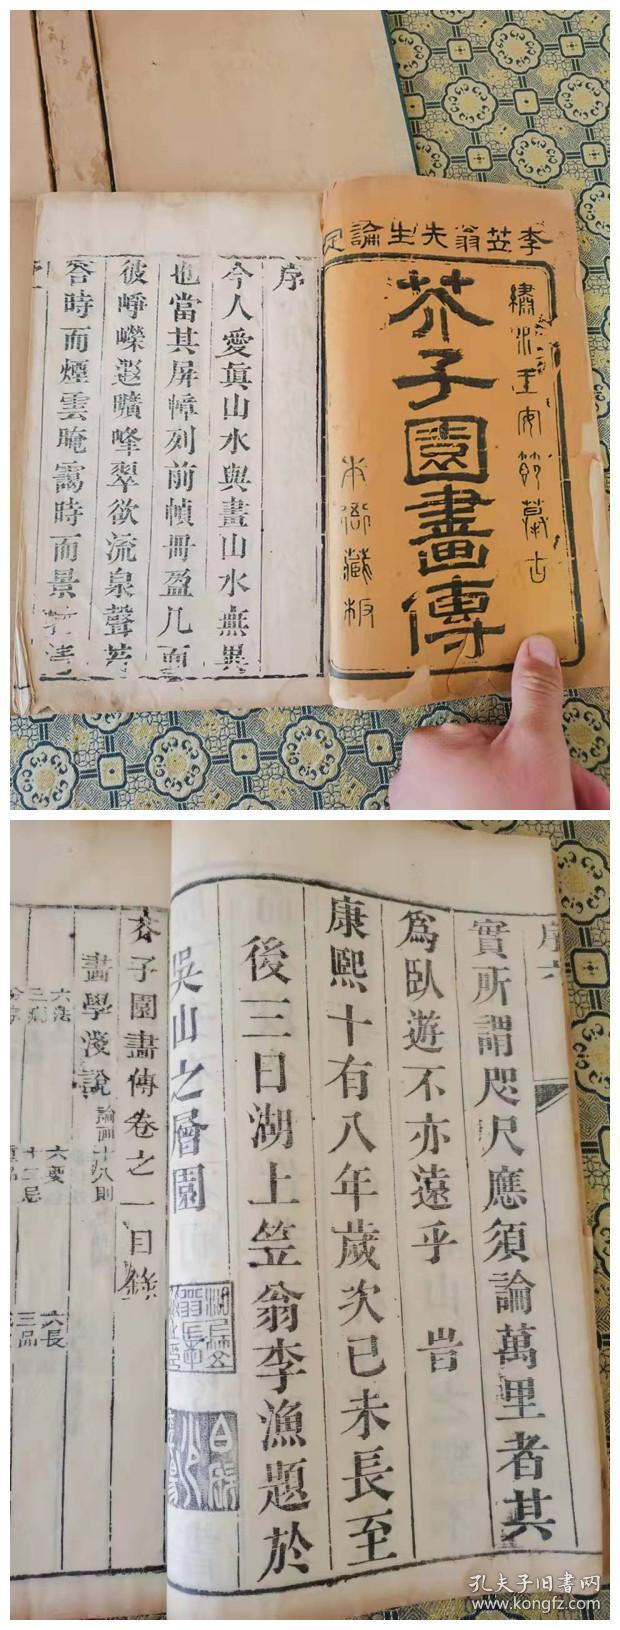 李笠翁先生論定
繡水王安節摹古
芥子園畫傳
本衙藏板
序
今人愛眞山水與畫山水無異
也當其屏幛列前幀冊盈几面
彼崢嶸遐曠峰翠欲流泉聲若
答時而煙雲晻靄時而景
序六
實所謂咫尺應須論萬里者其
爲臥遊不亦遠乎 旹
康熙十有八年歲次己未長至
後三日湖上笠翁李漁題於
吳山之層園
芥子園畫傳卷之一目錄
畫學淺說 論画十八則
六法 六要 六長
三病 十二忌 三品
孔夫子旧書网
www.kongfz.com